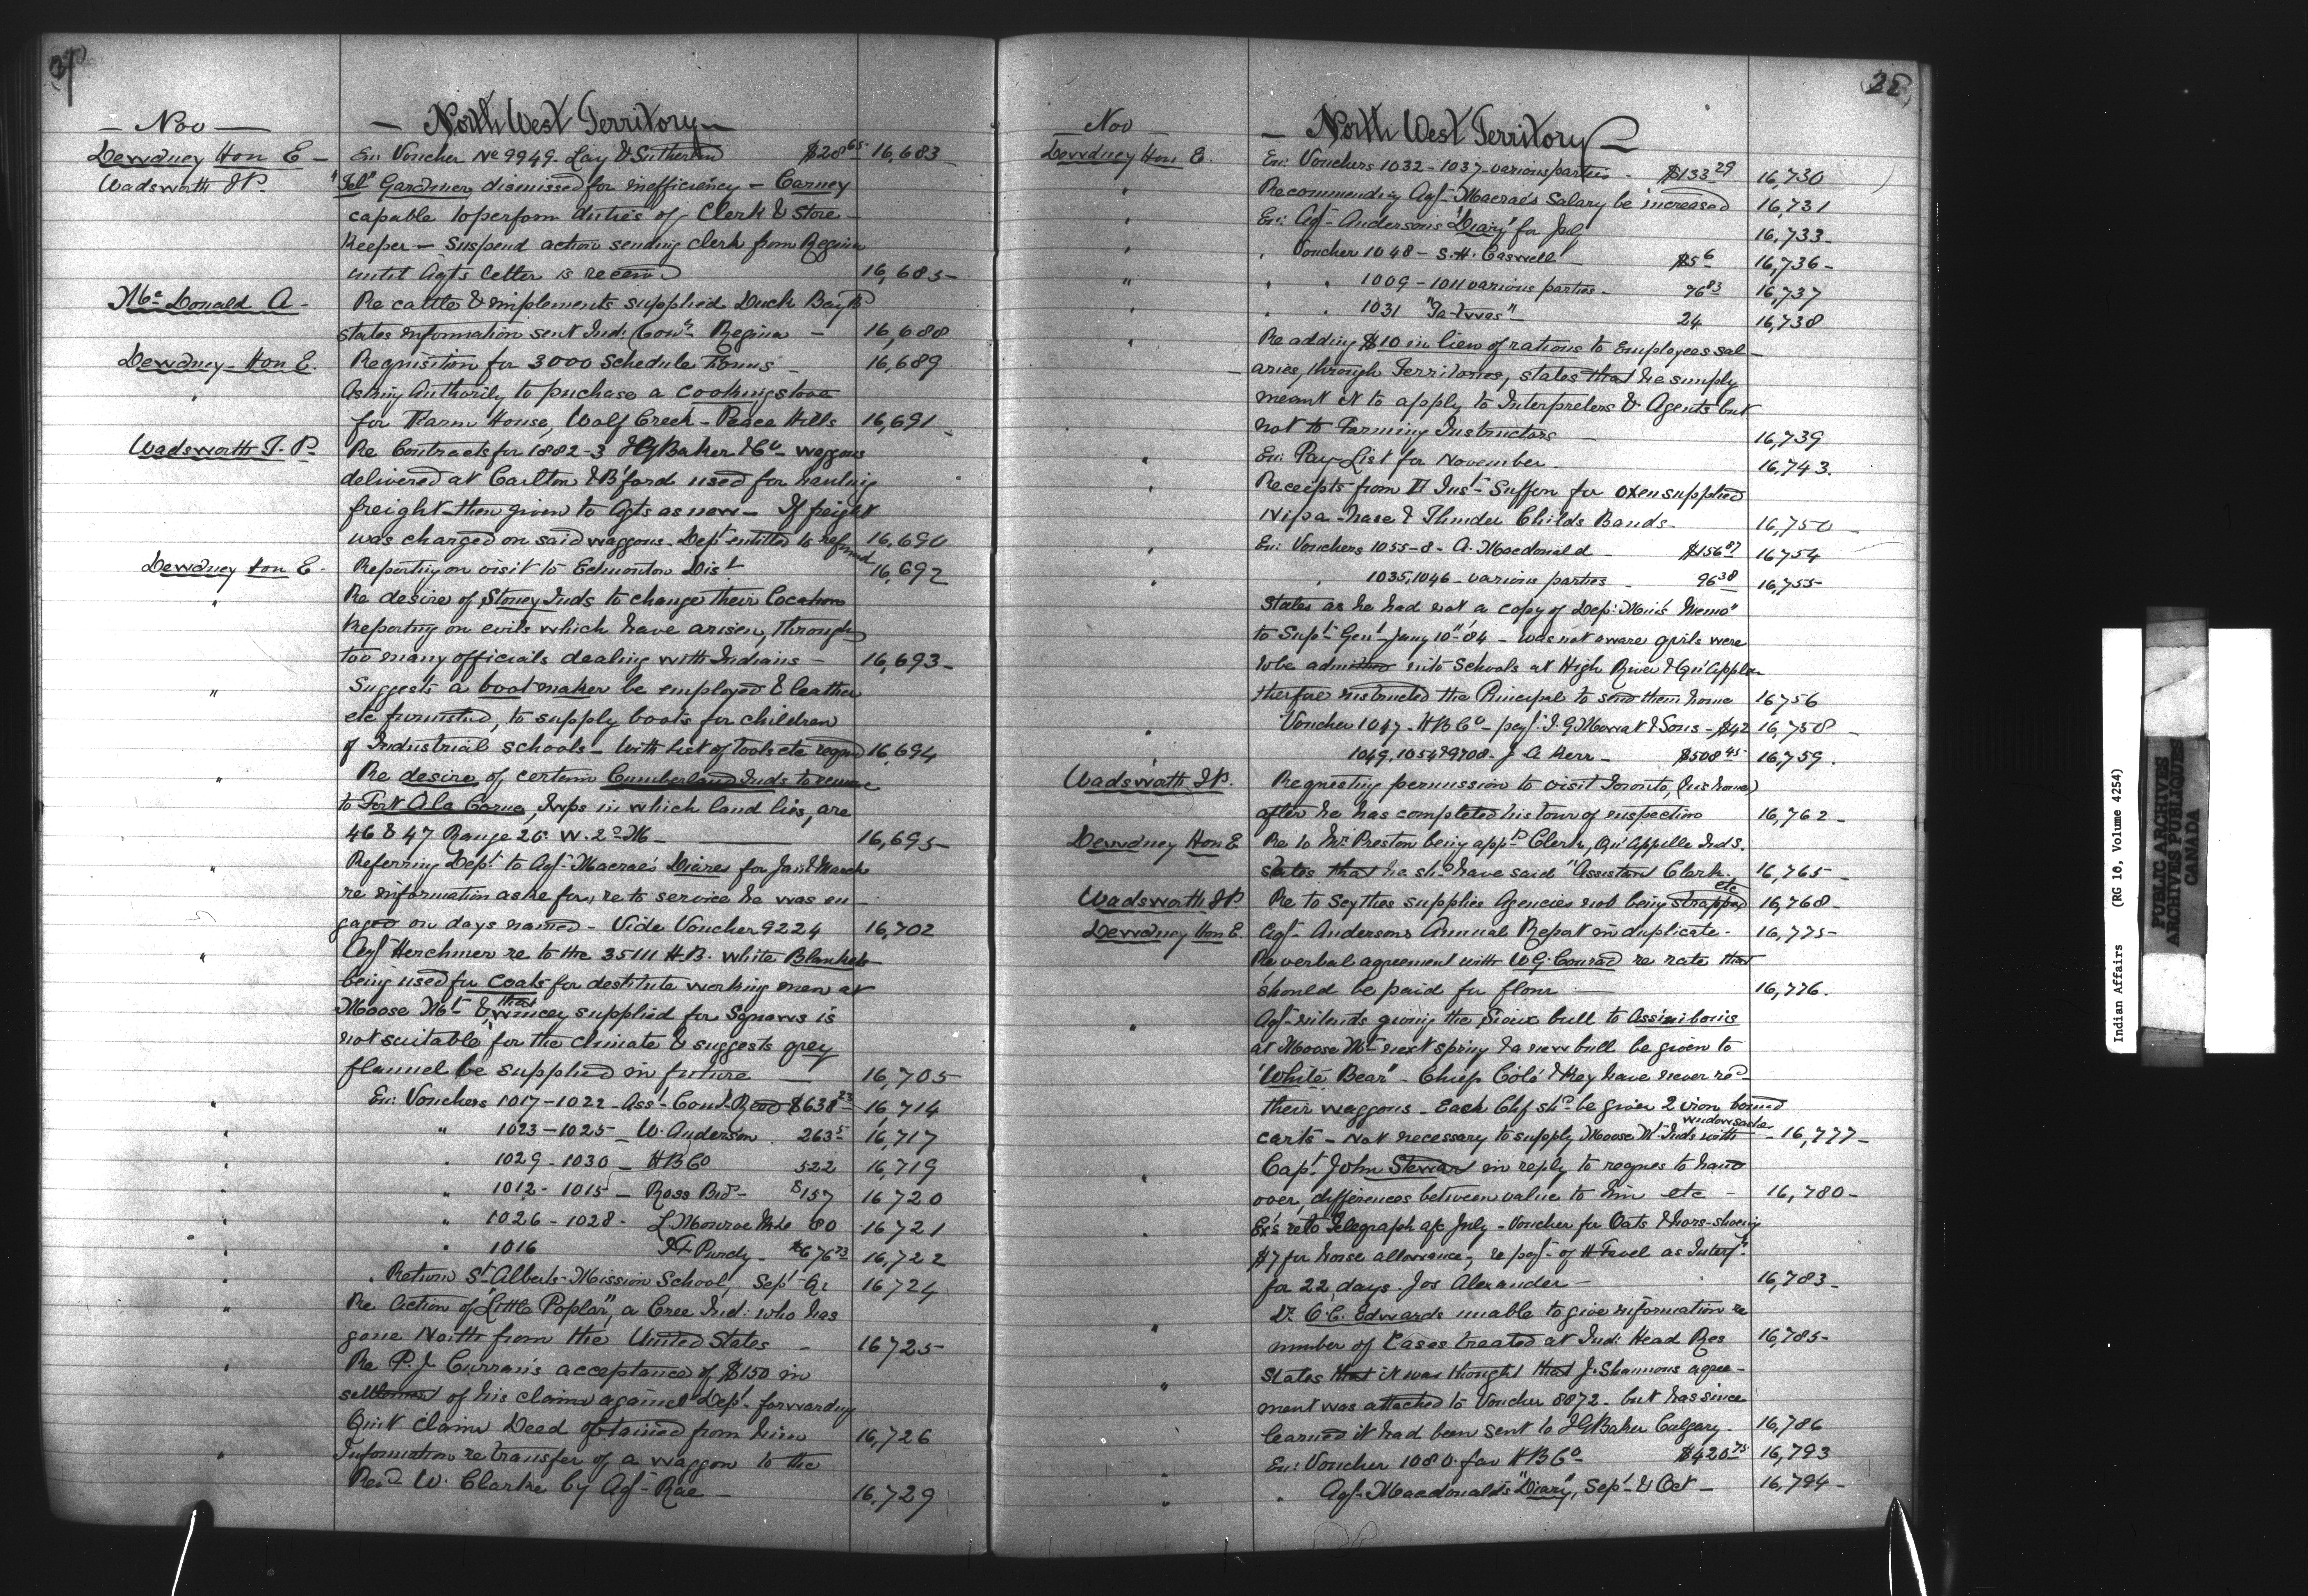 — Nov — — North West Territory —
Dewdney Hon E — En: Voucher No 9949. Lay & Sutherland $28 65 16,683
Wadsworth T P. "Tel" Gardiner dismissed for inefficiency — Carney
capable to perform duties of Clerk & Store
Keeper — Suspend action sending clerk from Regina
until Agts letter is received 16,685
McDonald A — Re cattle & implements supplied Duck Bay Bd
states information sent Ind: Comr Regina — 16,688
Dewdney Hon E. Requisition for 3000 Schedule Forms — 16,689
" Asking Authority to puchase a cooking stove
for Farm House, Wolf Creek — Peace Hills 16,691
Wadsworth T. P. Re Contracts for 1882-3 I G Baker & Co — waggons
delivered at Carlton & B'ford used for hauling
freight then given to Agts as new — If freight
was charged on said waggons — Dept entitled to refund 16,690
Dewdney Hon E — Reporting on visit to Edmonton Dist 16,692
" Re desire of Stoney Inds to change their location
Reporting on evils which have arisen, through
too many officials dealing with Indians — 16,693
" Suggests a boot maker be employed & leather
etc furnished, to supply boots for children
of Industrial schools — with list of tools etc reqrd 16,694
" Re desire of certain Cumberland Inds to remove
to Fort A la Corne, twps in which land lies, are
46 & 47 Range 20 W. 2nd M — 16,695
" Referring Dept to Agt Macrae's Diares for Jan & March
re information aske for, re to service he was en
gaged on days named — Vide Voucher 9224 16,702
" Agt Herchmer re to the 35 H.B. white Blankets
being used for coats for destitute working men at
Moose Mt & that wincey supplied for Squaws is
not suitable for the climate & suggests grey
flannel be supplied in future — 16,705
" En: Vouchers 1017-1022 — Asst Comr Reed $638 23 16,714
" " 1023-1025 — W. Anderson 263 5 16,717
" " 1029-1030 — H B Co 522 16,719
" " 1012-1015 — Ross Bros — $157 16,720
" " 1026-1028 — L. Monroe 80 16,721
" " 1016 T F Purdy — $676 73 16,722
" " Return St Alberts Mission School, Sept Qr 16,724
" Re Action of "Little Poplar", a Cree Ind: who has
gone North from the United States — 16,725
" Re P. J. Curran's acceptance of $150 in
settlement of his claim against Dept forwarding
Quit Claim Deed obtained from him 16,726
" Information re transfer of a waggon to the
Revd W. Clarke by Agt Rae — 16,729
Nov — North West Territory — 22
Dewdney Hon E. En: Vouchers 1032-1037 various parties — $133 29 16,730
" Recommending Agt Macrae's Salary be increased 16,731
" En: Agt Anderson's "Diary" for July 16,733
" " Voucher 1048 — S. H. Caswell — $5 6 16,736
" " " 1009-1011 various parties — 76 83 16,737
" " " 1031 "Ta-twas" 24 16,738
" Re adding $10 in lieu of rations to Employees sal
aries, through Territories, states that he simply
meant it to apply to Interpreters & Agents but
not to Farming Instructors — 16,739
" En: Pay List for November 16,743
" Receipts from F Inst Suffern for oxen supplied
Nipa-hase & Thunder Childs Bands — 16,750
" En: Vouchers 1055-8 — A. Macdonald — $156 87 16754
" " 1035, 1046 — various parties — 96 38 16,755
States as he had not a copy of Dep: Min's Memo
to Supt Genl Jany 10th 84 — was not aware girls were
to be admitted into Schools at High River & Qu'Appelle
therfore instructed the Principal to send them home 16756
" Voucher 1047 — H B Co — pay't J. G Mowat & Sons — $42 16,758
1049, 1054 & 9708 — J A Kerr — $508 45 16,759
Wadsworth T P. Requesting permission to visit Toronto, (his home)
after he has completed his tour of inspection 16,762
Dewdney Hon E Re to Mr Preston being appd Clerk, Qu'Appelle Inds.
states that he shd have said "Assistant Clerk" 16,765
Wadsworth T P. Re to Scythes supplies Agencies not being strapped etc 16,768
Dewdney Hon E. Agt Andersons Annual Report in duplicate — 16,775
Re verbal agreement with W G. Conrad re rate that
should be paid for flour — 16,776.
" Agt intends giving the Sioux bull to Assiniboins
at Moose Mt next spring & a new bull be given to
"White Bear" — Chief Cole' & they have never recd
their waggons — Each Chf shd be given 2 iron bound
carts — Not necessary to supply Moose Mt Inds with window sashes 16,777
" Capt John Stewart in reply to reques to hand
over, differences between value to him etc — 16,780
Ex's re to Telegraph a/c July — Voucher for Oats & hors-shoeing
$7 for horse allowance, re pay't of H Favel as Interpr
for 22 days. Jos Alexander — 16,783
" Dr O. C. Edwards unable to give information re
number of Cases treated at Ind: Head Res 16,785
" States that it was thought that J. Shannons agree
ment was attached to Voucher 8872 — but has since
learned it had been sent to I G Baker Calgary — 16,786
" En: Voucher 1080 fav H B Co — $420 75 16,793
" " Agt Macdonald's "Diary", Sept & Oct — 16,794
Indian Affairs (RG 10, Volume 4254)
PUBLIC ARCHIVES
ARCHIVES PUBLIQUES
CANADA